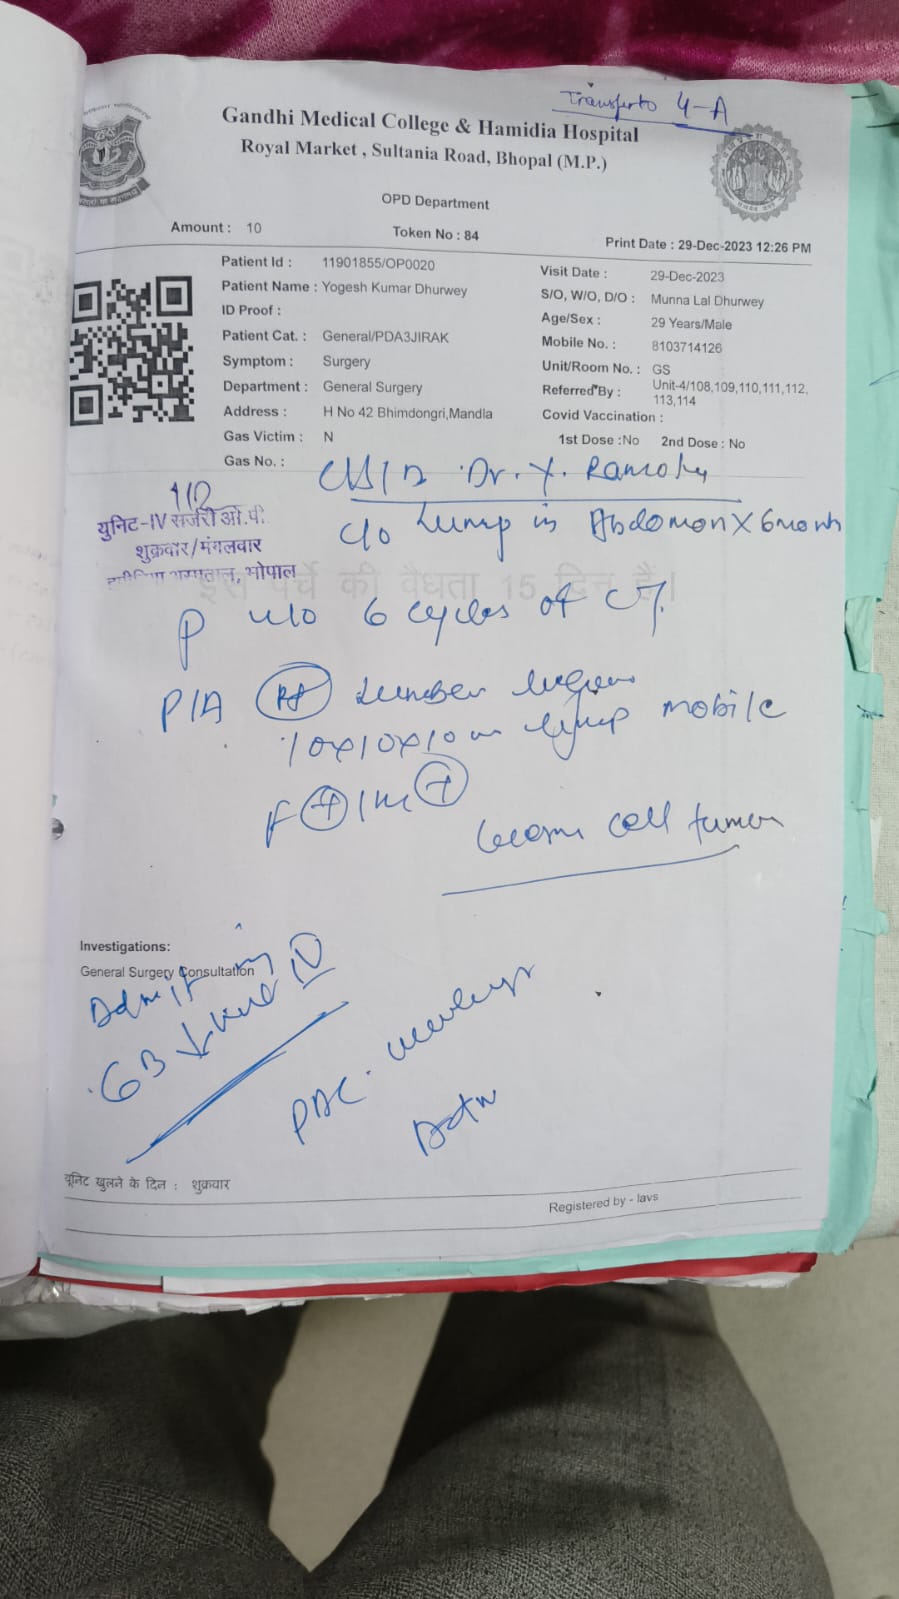 Transfer to 4-A
Gandhi Medical College & Hamidia Hospital
Royal Market , Sultania Road, Bhopal (M.P.)
OPD Department
Amount : 10 Token No : 84 Print Date : 29-Dec-2023 12:26 PM
Patient Id : 11901855/OP0020 Visit Date : 29-Dec-2023
Patient Name : Yogesh Kumar Dhurwey S/O, W/O, D/O : Munna Lal Dhurwey
ID Proof : Age/Sex : 29 Years/Male
Patient Cat. : General/PDA3JIRAK Mobile No. : 8103714126
Symptom : Surgery Unit/Room No. : GS
Department : General Surgery Referred By : Unit-4/108,109,110,111,112,
113,114
Address : H No 42 Bhimdongri,Mandla Covid Vaccination :
Gas Victim : N 1st Dose :No 2nd Dose : No
Gas No. :
Dr. Y.
युनिट-IV सर्जरी ओ.पी.
शुक्रवार/मंगलवार
हमीदिया अस्पताल, भोपाल
c/o Lump in Abdomen X 6 month
इस पर्चे की वैधता 15 दिन है।
6 cycles of
P/A
10x10x10 cm lump mobile
F ⊕
Germ cell tumor
Investigations:
General Surgery Consultation
Admit in
PAC
यूनिट खुलने के दिन : शुक्रवार
Registered by - lavs